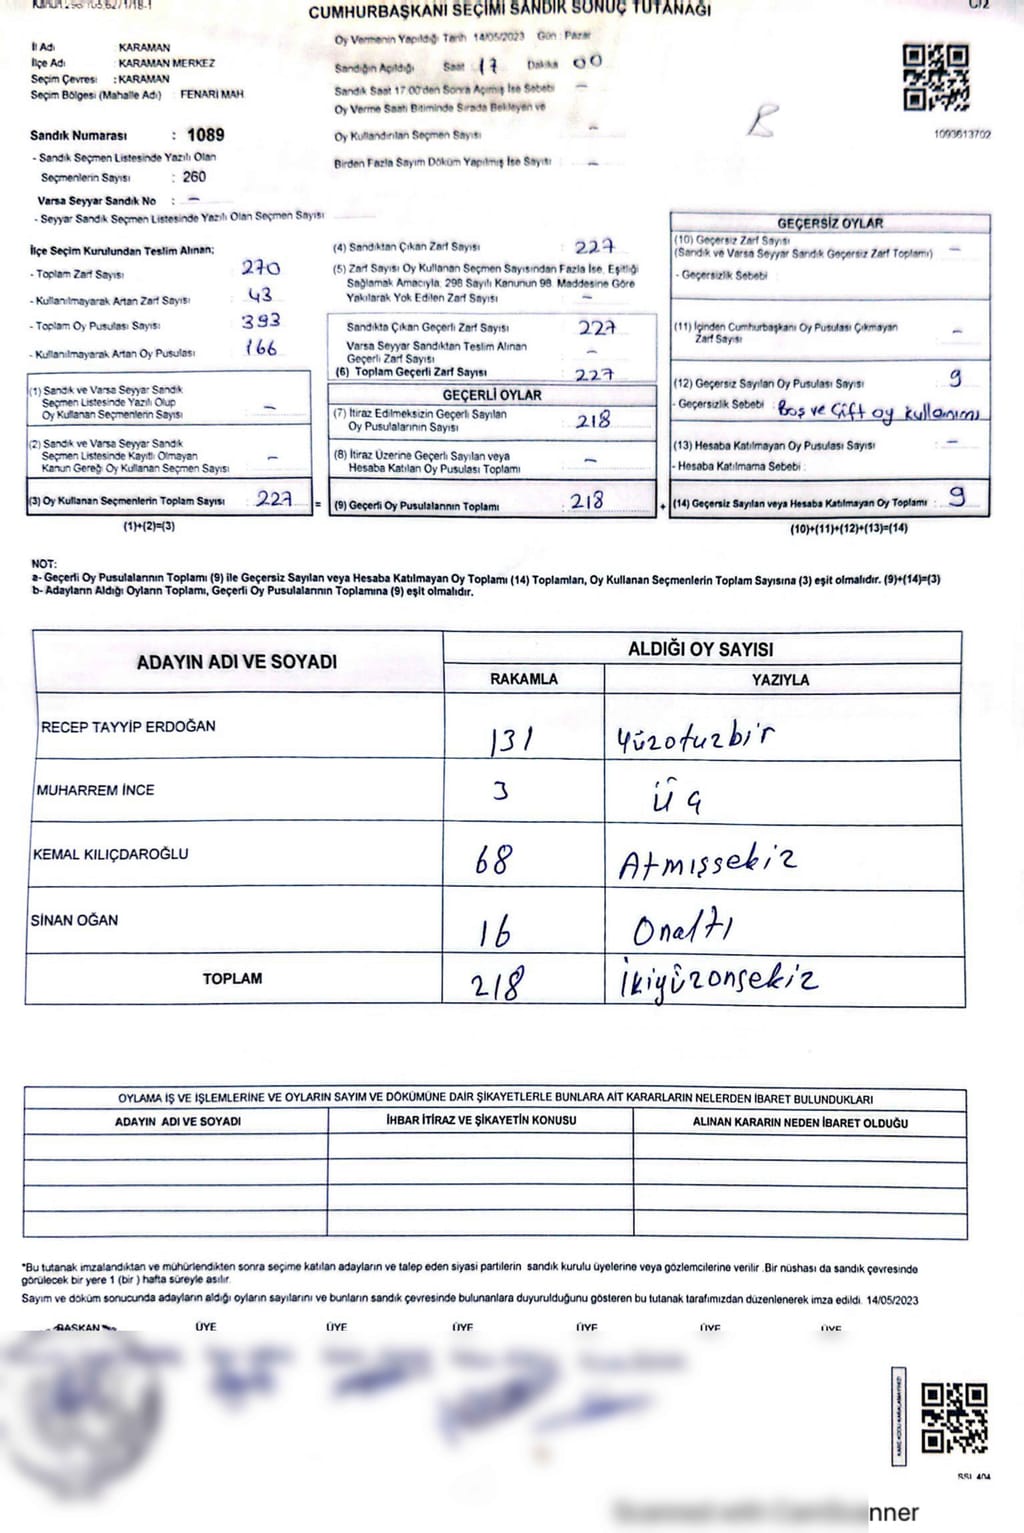 CUMHURBAŞKANI SEÇİMİ SANDIK SONUÇ TUTANAĞI
İl Adı : KARAMAN
İlçe Adı : KARAMAN MERKEZ
Seçim Çevresi : KARAMAN
Seçim Bölgesi (Mahalle Adı) : FENARİ MAH.
Sandık Numarası : 1089
- Sandık Seçmen Listesinde Yazılı Olan
Seçmenlerin Sayısı : 260
Varsa Seyyar Sandık No : –
- Seyyar Sandık Seçmen Listesinde Yazılı Olan Seçmen Sayısı
Oy Vermenin Yapıldığı Tarih 14/05/2023 Gün : Pazar
Sandığın Açıldığı Saat 17 Dakika 00
Sandık Saat 17.00'den Sonra Açılmış İse Sebebi –
Oy Verme Saati Bitiminde Sırada Bekleyen ve
Oy Kullandırılan Seçmen Sayısı –
Birden Fazla Sayım Döküm Yapılmış İse Sayısı : –
1093613702
İlçe Seçim Kurulundan Teslim Alınan;
- Toplam Zarf Sayısı : 270
- Kullanılmayarak Artan Zarf Sayısı : 43
- Toplam Oy Pusulası Sayısı : 393
- Kullanılmayarak Artan Oy Pusulası : 166
(1) Sandık ve Varsa Seyyar Sandık
Seçmen Listesinde Yazılı Olup
Oy Kullanan Seçmenlerin Sayısı : –
(2) Sandık ve Varsa Seyyar Sandık
Seçmen Listesinde Kayıtlı Olmayan
Kanun Gereği Oy Kullanan Seçmen Sayısı : –
(3) Oy Kullanan Seçmenlerin Toplam Sayısı : 227 =
(1)+(2)=(3)
(4) Sandıktan Çıkan Zarf Sayısı : 227
(5) Zarf Sayısı Oy Kullanan Seçmen Sayısından Fazla İse, Eşitliği
Sağlamak Amacıyla, 298 Sayılı Kanunun 98. Maddesine Göre
Yakılarak Yok Edilen Zarf Sayısı : –
Sandıkta Çıkan Geçerli Zarf Sayısı : 227
Varsa Seyyar Sandıktan Teslim Alınan
Geçerli Zarf Sayısı : –
(6) Toplam Geçerli Zarf Sayısı : 227
GEÇERLİ OYLAR
(7) İtiraz Edilmeksizin Geçerli Sayılan
Oy Pusulalarının Sayısı : 218
(8) İtiraz Üzerine Geçerli Sayılan veya
Hesaba Katılan Oy Pusulası Toplamı : –
(9) Geçerli Oy Pusulalarının Toplamı : 218 +
GEÇERSİZ OYLAR
(10) Geçersiz Zarf Sayısı
(Sandık ve Varsa Seyyar Sandık Geçersiz Zarf Toplamı) : –
- Geçersizlik Sebebi :
(11) İçinden Cumhurbaşkanı Oy Pusulası Çıkmayan
Zarf Sayısı : –
(12) Geçersiz Sayılan Oy Pusulası Sayısı : 9
- Geçersizlik Sebebi : Boş ve Çift oy kullanımı
(13) Hesaba Katılmayan Oy Pusulası Sayısı : –
- Hesaba Katılmama Sebebi :
(14) Geçersiz Sayılan veya Hesaba Katılmayan Oy Toplamı : 9
(10)+(11)+(12)+(13)=(14)
NOT:
a- Geçerli Oy Pusulalarının Toplamı (9) ile Geçersiz Sayılan veya Hesaba Katılmayan Oy Toplamı (14) Toplamları, Oy Kullanan Seçmenlerin Toplam Sayısına (3) eşit olmalıdır. (9)+(14)=(3)
b- Adayların Aldığı Oyların Toplamı, Geçerli Oy Pusulalarının Toplamına (9) eşit olmalıdır.
ADAYIN ADI VE SOYADI ALDIĞI OY SAYISI
RAKAMLA YAZIYLA
RECEP TAYYİP ERDOĞAN 131 Yüzotuzbir
MUHARREM İNCE 3 Üç
KEMAL KILIÇDAROĞLU 68 Atmışsekiz
SİNAN OĞAN 16 Onaltı
TOPLAM 218 İkiyüzonsekiz
OYLAMA İŞ VE İŞLEMLERİNE VE OYLARIN SAYIM VE DÖKÜMÜNE DAİR ŞİKAYETLERLE BUNLARA AİT KARARLARIN NELERDEN İBARET BULUNDUKLARI
ADAYIN ADI VE SOYADI İHBAR İTİRAZ VE ŞİKAYETİN KONUSU ALINAN KARARIN NEDEN İBARET OLDUĞU
*Bu tutanak imzalandıktan ve mühürlendikten sonra seçime katılan adayların ve talep eden siyasi partilerin sandık kurulu üyelerine veya gözlemcilerine verilir .Bir nüshası da sandık çevresinde
görülecek bir yere 1 (bir ) hafta süreyle asılır.
Sayım ve döküm sonucunda adayların aldığı oyların sayılarını ve bunların sandık çevresinde bulunanlara duyurulduğunu gösteren bu tutanak tarafımızdan düzenlenerek imza edildi. 14/05/2023
BAŞKAN ÜYE ÜYE ÜYE ÜYE ÜYE ÜYE
nner